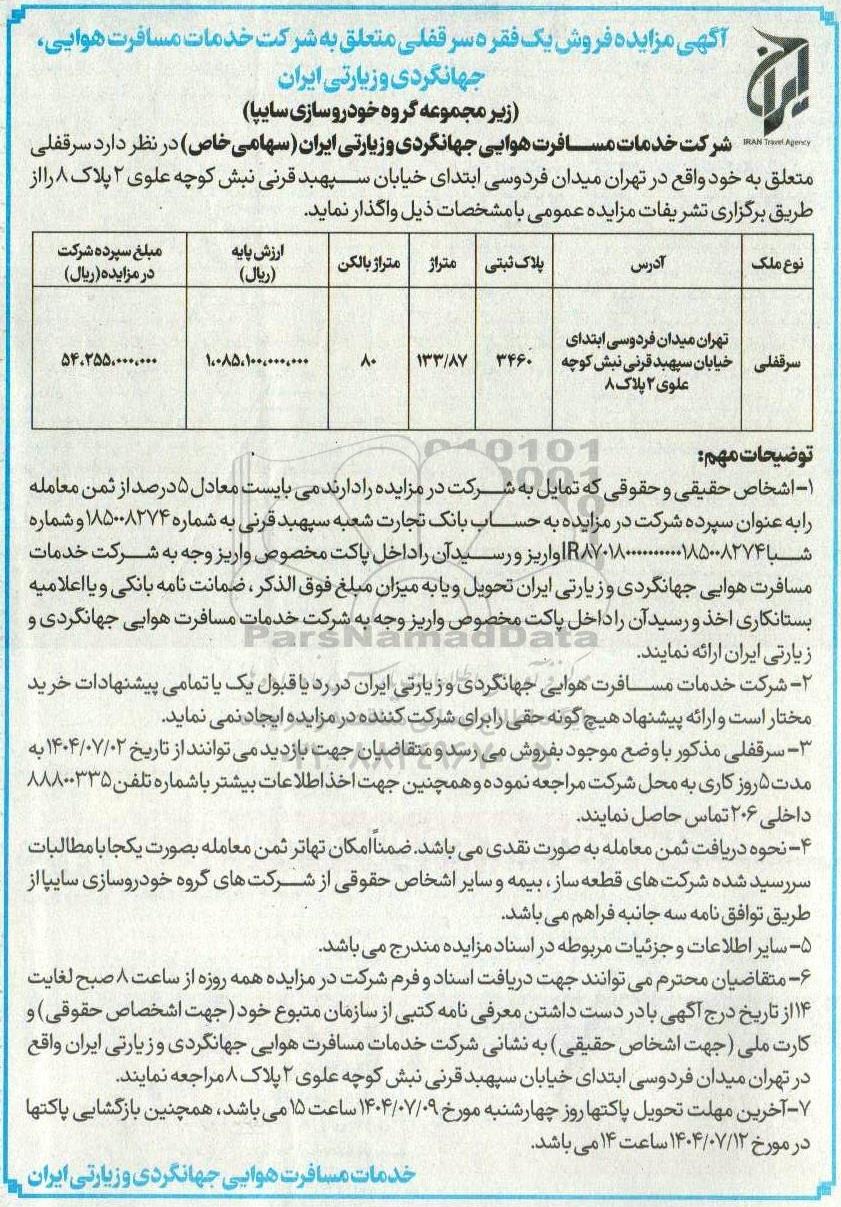 آگهی مزایده فروش یک فقره سرقفلی متعلق به شرکت خدمات مسافرت هوایی،
جهانگردی و زیارتی ایران
(زیر مجموعه گروه خودروسازی سایپا)
ایران
IRAN Travel Agency
شرکت خدمات مسافرت هوایی جهانگردی و زیارتی ایران (سهامی خاص) در نظر دارد سرقفلی
متعلق به خود واقع در تهران میدان فردوسی ابتدای خیابان سپهبد قرنی نبش کوچه علوی ۲ پلاک ۸ را از
طریق برگزاری تشریفات مزایده عمومی با مشخصات ذیل واگذار نماید.
نوع ملک | آدرس | پلاک ثبتی | متراژ | متراژ بالکن | ارزش پایه (ریال) | مبلغ سپرده شرکت در مزایده (ریال)
سرقفلی | تهران میدان فردوسی ابتدای خیابان سپهبد قرنی نبش کوچه علوی ۲ پلاک ۸ | ۳۴۶۰ | ۱۳۳/۸۷ | ۸۰ | ۱،۰۸۵،۱۰۰،۰۰۰،۰۰۰ | ۵۴،۲۵۵،۰۰۰،۰۰۰
توضیحات مهم:
۱- اشخاص حقیقی و حقوقی که تمایل به شرکت در مزایده را دارند می بایست معادل ۵ درصد از ثمن معامله
را به عنوان سپرده شرکت در مزایده به حساب بانک تجارت شعبه سپهبد قرنی به شماره ۱۸۵۰۰۸۲۷۴ و شماره
شبا IR۸۷۰۱۸۰۰۰۰۰۰۰۰۰۰۰۱۸۵۰۰۸۲۷۴ واریز و رسید آن را داخل پاکت مخصوص واریز وجه به شرکت خدمات
مسافرت هوایی جهانگردی و زیارتی ایران تحویل و یا به میزان مبلغ فوق الذکر، ضمانت نامه بانکی و یا اعلامیه
بستانکاری اخذ و رسید آن را داخل پاکت مخصوص واریز وجه به شرکت خدمات مسافرت هوایی جهانگردی و
زیارتی ایران ارائه نمایند.
ParsNamadData
۲- شرکت خدمات مسافرت هوایی جهانگردی و زیارتی ایران در رد یا قبول یک یا تمامی پیشنهادات خرید
مختار است و ارائه پیشنهاد هیچ گونه حقی را برای شرکت کننده در مزایده ایجاد نمی نماید.
۳- سرقفلی مذکور با وضع موجود بفروش می رسد و متقاضیان جهت بازدید می توانند از تاریخ ۱۴۰۴/۰۷/۰۲ به
مدت ۵ روز کاری به محل شرکت مراجعه نموده و همچنین جهت اخذ اطلاعات بیشتر با شماره تلفن ۸۸۸۰۰۳۳۵
داخلی ۲۰۶ تماس حاصل نمایند.
۴- نحوه دریافت ثمن معامله به صورت نقدی می باشد. ضمناً امکان تهاتر ثمن معامله بصورت یکجا با مطالبات
سررسید شده شرکت های قطعه ساز، بیمه و سایر اشخاص حقوقی از شرکت های گروه خودروسازی سایپا از
طریق توافق نامه سه جانبه فراهم می باشد.
۵- سایر اطلاعات و جزئیات مربوطه در اسناد مزایده مندرج می باشد.
۶- متقاضیان محترم می توانند جهت دریافت اسناد و فرم شرکت در مزایده همه روزه از ساعت ۸ صبح لغایت
۱۴ از تاریخ درج آگهی با در دست داشتن معرفی نامه کتبی از سازمان متبوع خود (جهت اشخصاص حقوقی) و
کارت ملی (جهت اشخاص حقیقی) به نشانی شرکت خدمات مسافرت هوایی جهانگردی و زیارتی ایران واقع
در تهران میدان فردوسی ابتدای خیابان سپهبد قرنی نبش کوچه علوی ۲ پلاک ۸ مراجعه نمایند.
۷- آخرین مهلت تحویل پاکتها روز چهارشنبه مورخ ۱۴۰۴/۰۷/۰۹ ساعت ۱۵ می باشد، همچنین بازگشایی پاکتها
در مورخ ۱۴۰۴/۰۷/۱۲ ساعت ۱۴ می باشد.
خدمات مسافرت هوایی جهانگردی و زیارتی ایران